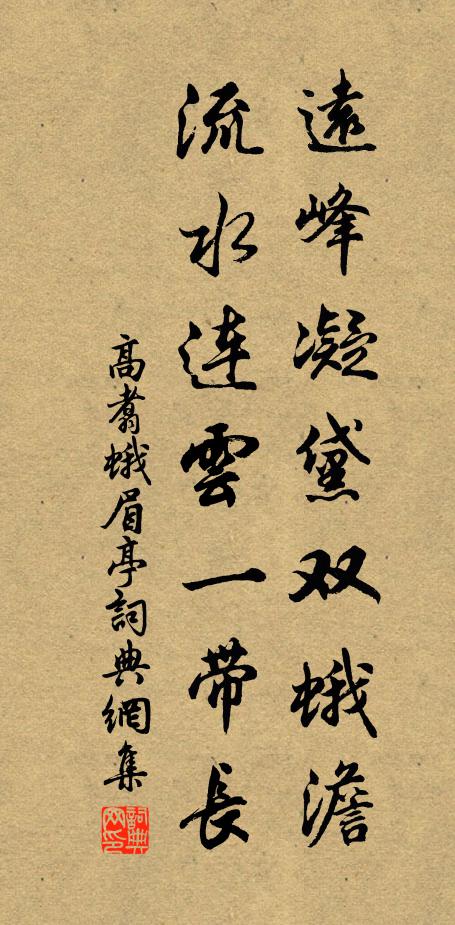 遠峰凝黛双蛾澹
流水連雲一带長
高翥蛾眉亭詞典網集
詞典网印